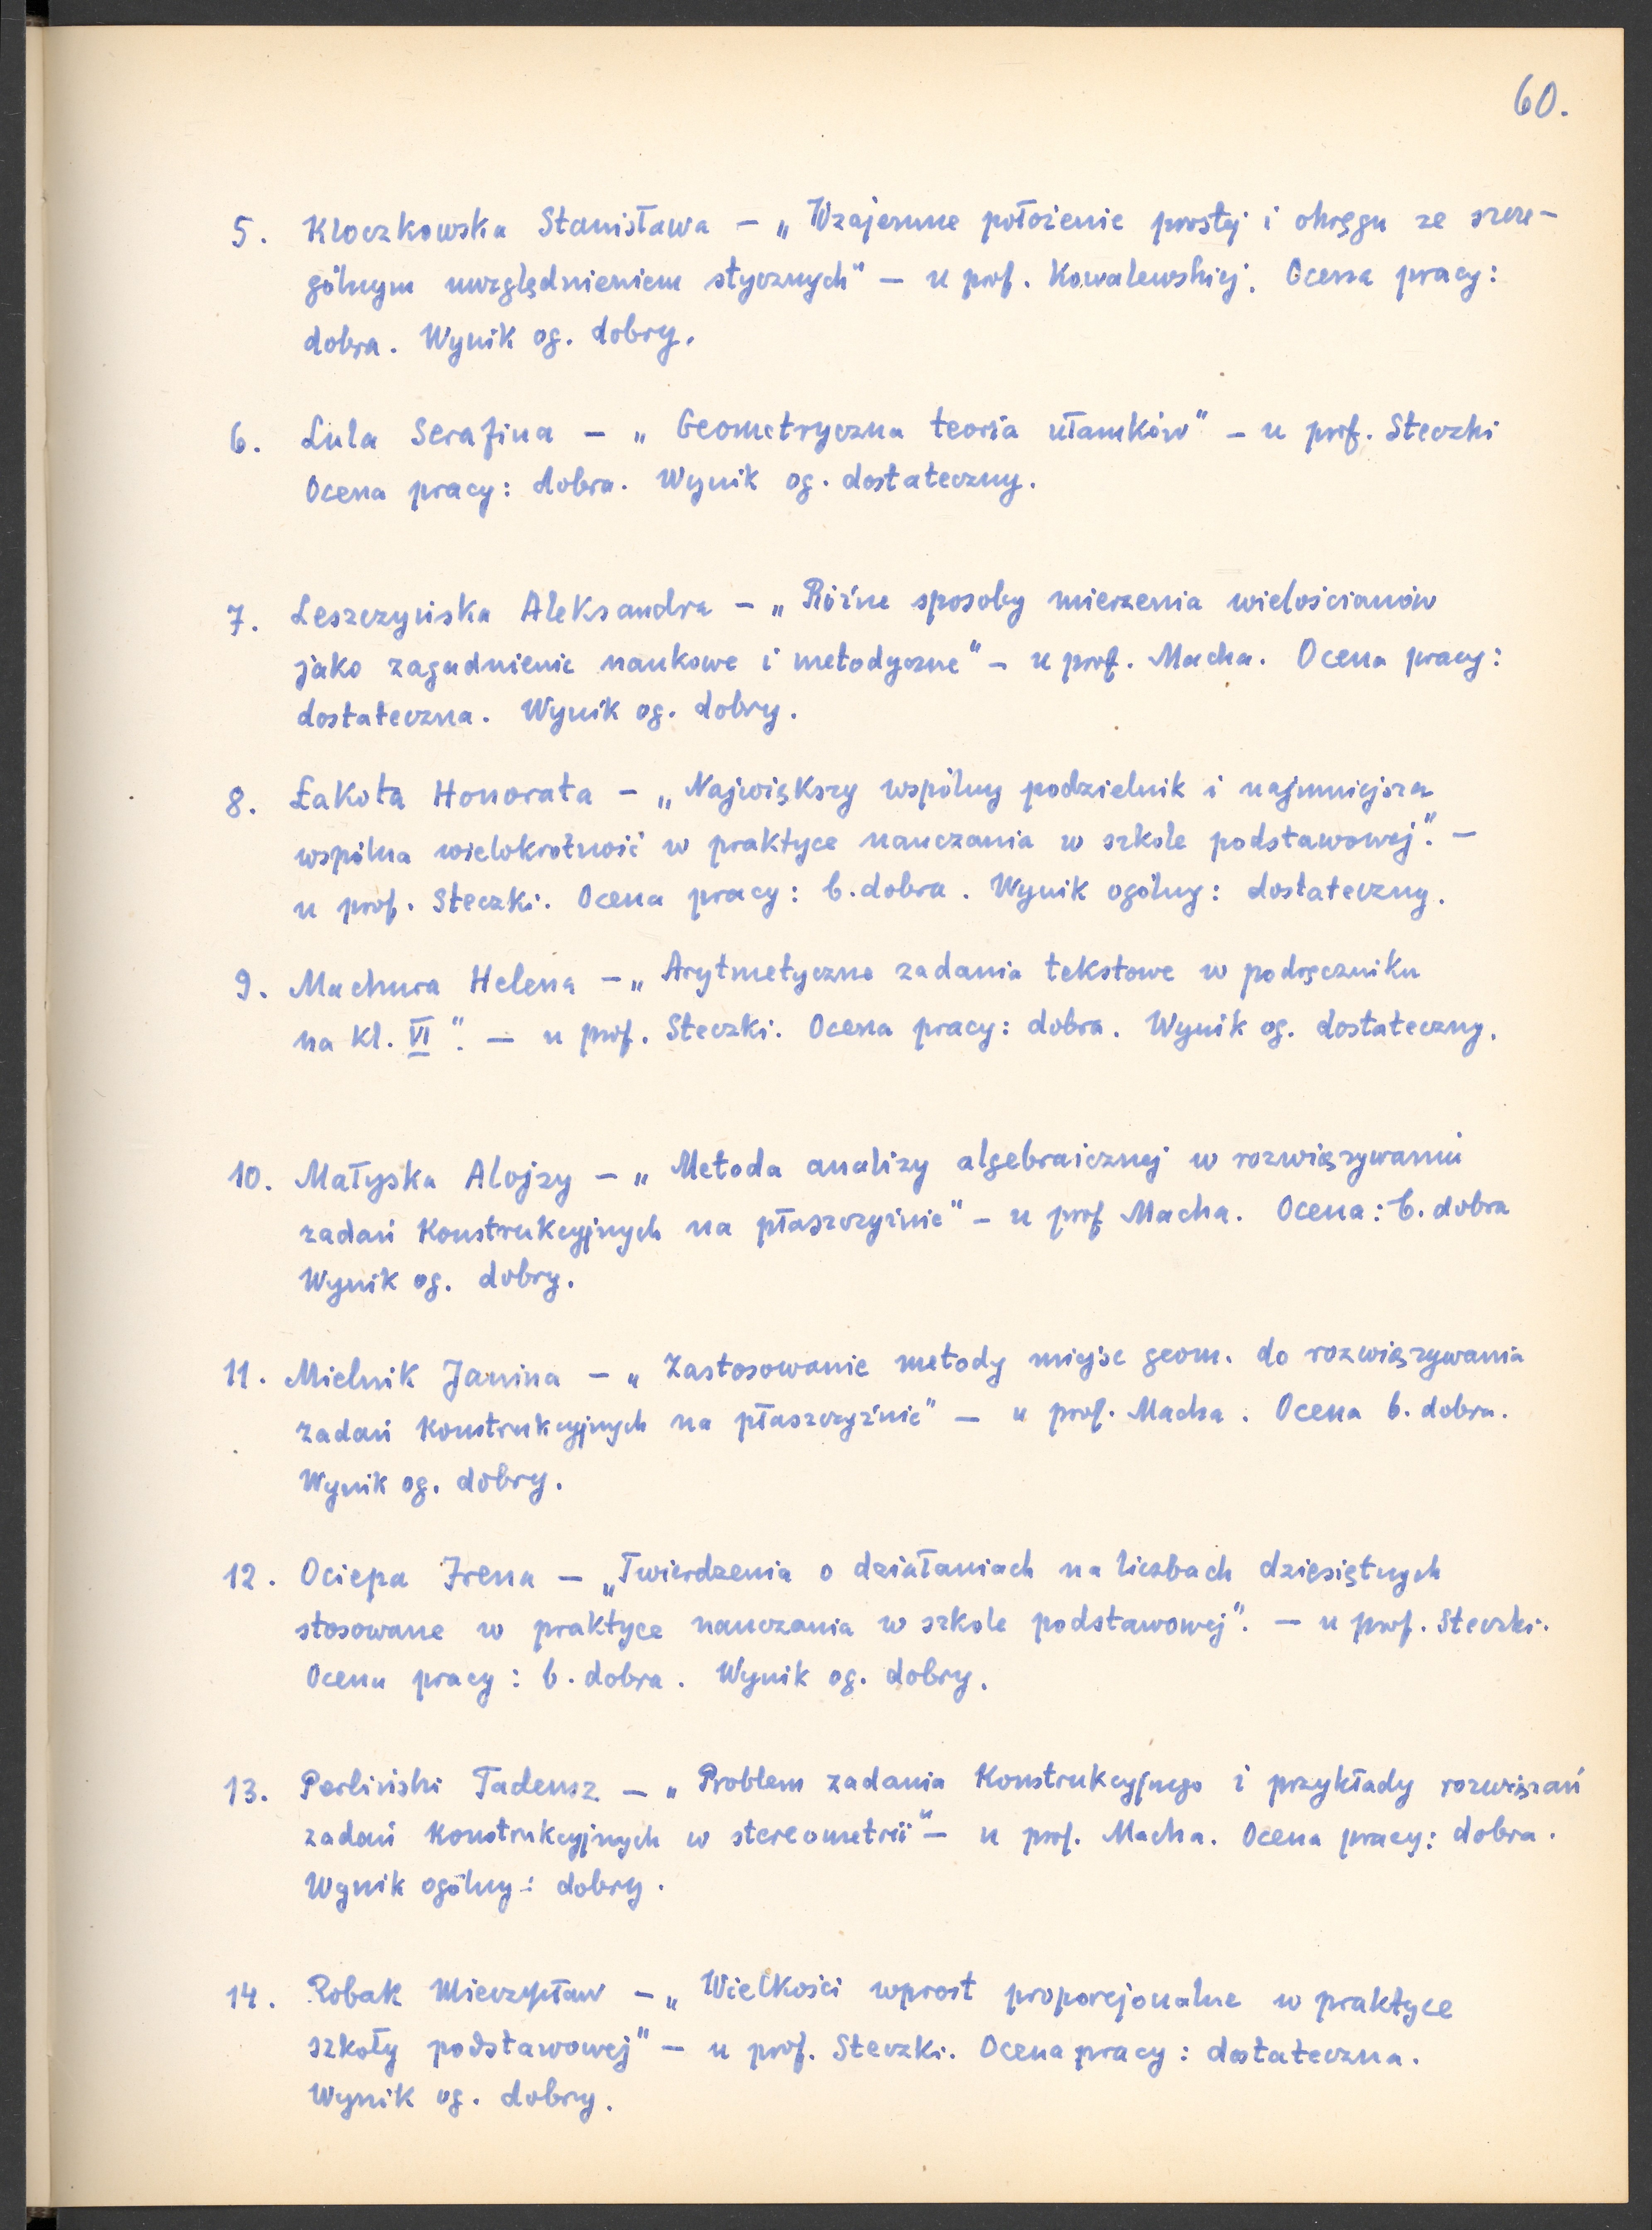 60.
5. Kloczkowska Stanisława – „Wzajemne położenie prostej i okręgu ze szcze-
gólnym uwzględnieniem stycznych" – u prof. Kowalewskiej. Ocena pracy:
dobra. Wynik og. dobry.
6. Lula Serafina – „Geometryczna teoria ułamków" – u prof. Steczki
Ocena pracy: dobra. Wynik og. dostateczny.
7. Leszczyńska Aleksandra – „Różne sposoby mierzenia wielościanów
jako zagadnienie naukowe i metodyczne" – u prof. Macha. Ocena pracy:
dostateczna. Wynik og. dobry.
8. Łakota Honorata – „Największy wspólny podzielnik i najmniejsza
wspólna wielokrotność w praktyce nauczania w szkole podstawowej". –
u prof. Steczki. Ocena pracy: b. dobra. Wynik ogólny: dostateczny.
9. Machura Helena – „Arytmetyczne zadania tekstowe w podręczniku
na kl. VI". – u prof. Steczki. Ocena pracy: dobra. Wynik og. dostateczny.
10. Małyska Alojzy – „Metoda analizy algebraicznej w rozwiązywaniu
zadań konstrukcyjnych na płaszczyźnie" – u prof Macha. Ocena: b. dobra
Wynik og. dobry.
11. Mielnik Janina – „Zastosowanie metody miejsc geom. do rozwiązywania
zadań konstrukcyjnych na płaszczyźnie" – u prof. Macha. Ocena b. dobra.
Wynik og. dobry.
12. Ociepa Irena – „Twierdzenia o działaniach na liczbach dziesiętnych
stosowane w praktyce nauczania w szkole podstawowej". – u prof. Steczki.
Ocena pracy: b. dobra. Wynik og. dobry.
13. Perliński Tadeusz – „Problem zadania konstrukcyjnego i przykłady rozwiązań
zadań konstrukcyjnych w stereometrii" – u prof. Macha. Ocena pracy: dobra.
Wynik ogólny: dobry.
14. Robak Mieczysław – „Wielkości wprost proporcjonalne w praktyce
szkoły podstawowej" – u prof. Steczki. Ocena pracy: dostateczna.
Wynik og. dobry.